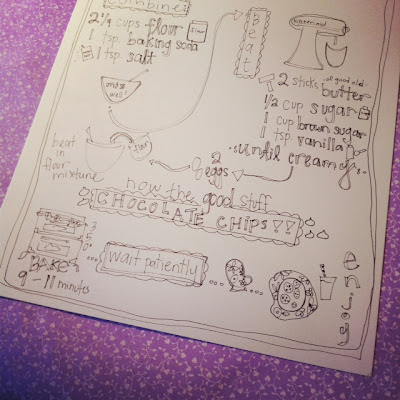 Combine:
2 1/4 cups flour
1 tsp. baking soda
1 tsp. salt
mix well!
beat
kitchenaid
2 sticks all good old butter
1/2 cup sugar
1 cup brown sugar
1 tsp vanilla
until creamy
2 eggs
beat in flour mixture
now the good stuff
CHOCOLATE CHIPS!!
BAKE
9 - 11 minutes
...wait patiently...
enjoy